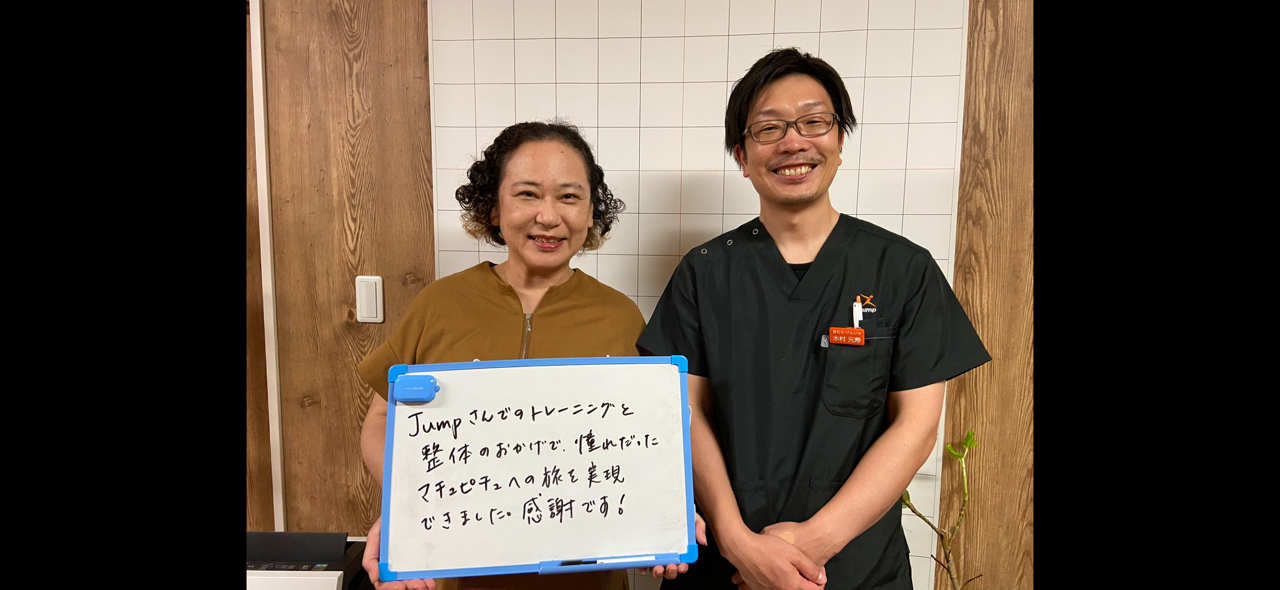 Jumpさんでのトレーニングと
整体のおかげで、憧れだった
マチュピチュへの旅を実現
できました。感謝です!
Jump
きむら げんじゅ
木村 元寿